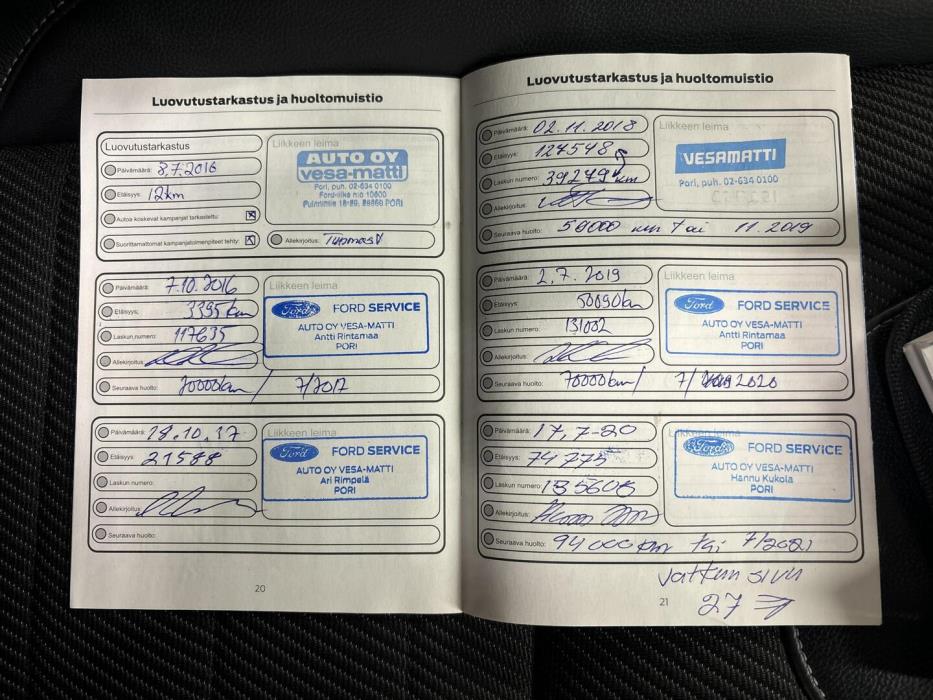 Luovutustarkastus ja huoltomuistio
Luovutustarkastus
Päivämäärä: 8.7.2016
Etäisyys: 12km
Autoa koskevat kampanjat tarkastettu:
Suorittamattomat kampanjatoimenpiteet tehty:
Liikkeen leima
AUTO OY
vesa-matti
Pori, puh. 02-634 0100
Ford-liike n:o 10600
PORI
Allekirjoitus:
Päivämäärä: 7.10.2016
Etäisyys: 3395 km
Laskun numero: 117635
Allekirjoitus:
Liikkeen leima
Ford FORD SERVICE
AUTO OY VESA-MATTI
Antti Rintamaa
PORI
Seuraava huolto: 20000km / 7/2017
Päivämäärä: 18.10.17
Etäisyys: 21588
Laskun numero:
Allekirjoitus:
Liikkeen leima
Ford FORD SERVICE
AUTO OY VESA-MATTI
Ari Rimpelä
PORI
Seuraava huolto:
20
Luovutustarkastus ja huoltomuistio
Päivämäärä: 02.11.2018
Etäisyys: 124548
Laskun numero: 39249 km
Allekirjoitus:
Liikkeen leima
VESAMATTI
Pori, puh. 02-634 0100
Seuraava huolto: 59000 km tai 11.2019
Päivämäärä: 2.7.2019
Etäisyys: 50090km
Laskun numero: 131002
Allekirjoitus:
Liikkeen leima
Ford FORD SERVICE
AUTO OY VESA-MATTI
Antti Rintamaa
PORI
Seuraava huolto: 70000km / 7/ 2020
Päivämäärä: 17.7-20
Etäisyys: 74775
Laskun numero: 135608
Allekirjoitus:
Liikkeen leima
Ford FORD SERVICE
AUTO OY VESA-MATTI
Hannu Kukola
PORI
Seuraava huolto: 94000 km tai 7/2021
jatkuu sivu
21
27 →